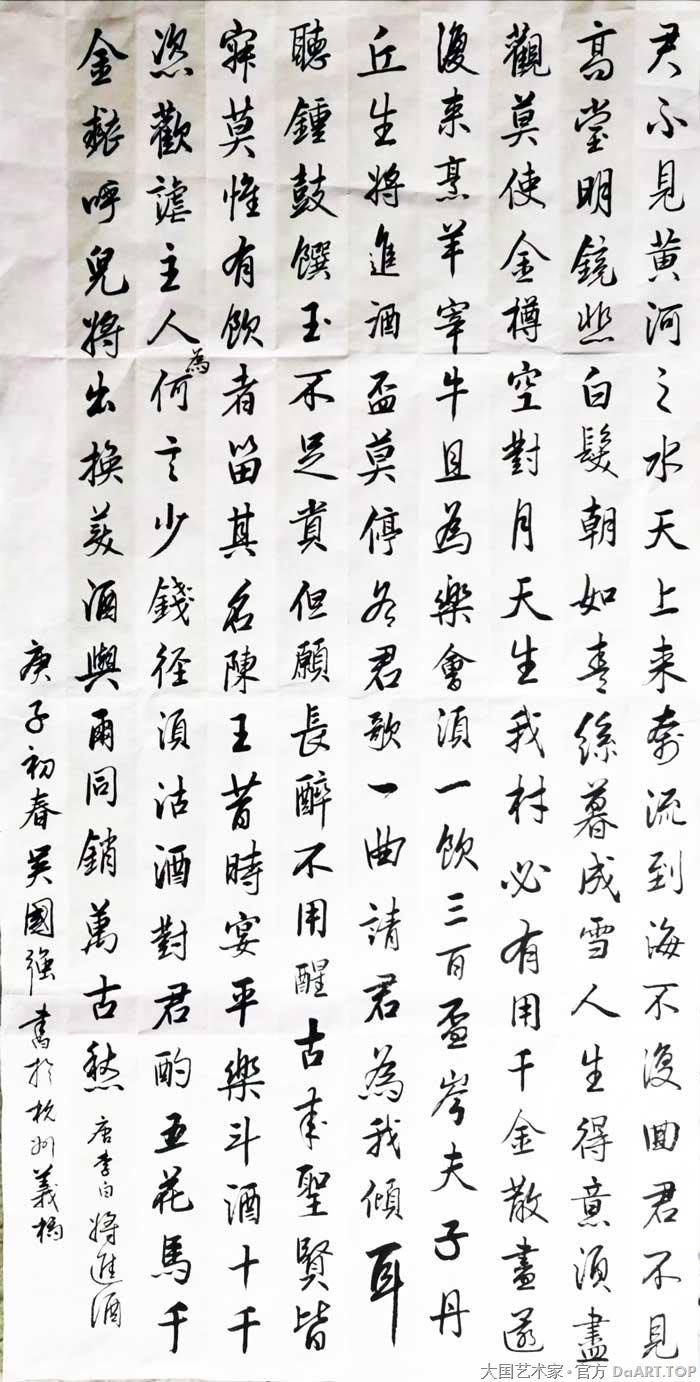 君不見黄河之水天上来奔流到海不復回君不見
高堂明鏡悲白髮朝如青絲暮成雪人生得意須盡
觀莫使金樽空對月天生我材必有用千金散盡還
復来烹羊宰牛且為樂會須一飲三百盃岑夫子丹
丘生將進酒盃莫停与君歌一曲請君為我傾耳
聽鍾鼓饌玉不足貴但願長醉不用醒古来聖賢皆
寂莫惟有飲者留其名陳王昔時宴平樂斗酒十千
恣歡謔主人何為言少錢径須沽酒對君酌五花馬千
金裘呼兒將出換美酒與爾同銷萬古愁 唐李白將進酒
庚子初春吴國強書於杭州義橋
大国艺术家·官方 DaART.TOP